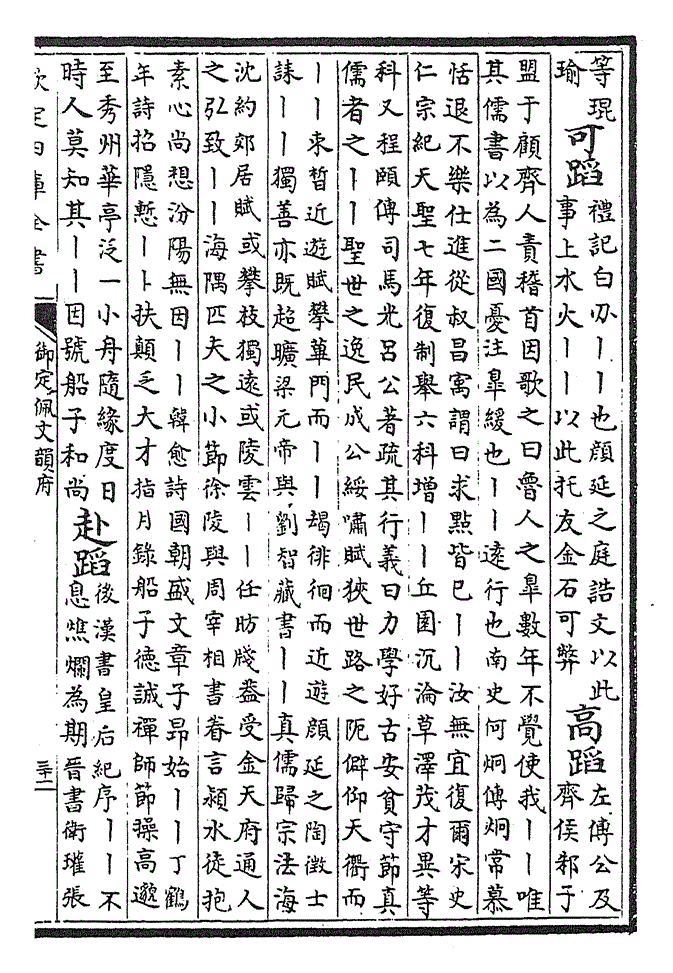 等琨
瑜
可蹈
禮記白刃丨丨也顏延之庭誥文以此
事上水火丨丨以此托友金石可弊
高蹈
左傳公及
齊侯邾子
盟于顧齊人責稽首因歌之曰魯人之臯數年不覺使我丨丨唯
其儒書以為二國憂注臯緩也丨丨遠行也南史何炯傳炯常慕
恬退不樂仕進從叔昌寓謂曰求點皆已丨丨汝無宜復爾宋史
仁宗紀天聖七年復制舉六科增丨丨丘園沉淪草澤茂才異等
科又程頤傳司馬光呂公著疏其行義曰力學好古安貧守節真
儒者之丨丨聖世之逸民成公綏嘯賦狹世路之阨僻仰天衢而
丨丨束晳近遊賦攀蓽門而丨丨朅徘徊而近遊顏延之陶徵士
誄丨丨獨善亦既超曠梁元帝與劉智藏書丨丨真儒歸宗法海
沈約郊居賦或攀枝獨遠或陵雲丨丨任昉牋葢受金天府通人
之弘致丨丨海隅匹夫之小節徐陵與周宰相書眷言潁水徒抱
素心尚想汾陽無因丨丨韓愈詩國朝盛文章子昂始丨丨丁鶴
年詩招隱慙丨卜扶顛乏大才指月錄船子德誠禪師節操高邈
至秀州華亭泛一小舟隨緣度日
時人莫知其丨丨因號船子和尚
赴蹈
後漢書皇后紀序丨丨不
息燋爛為期晉書衛瓘張
欽定四庫全書
御定佩文韻府
三十二